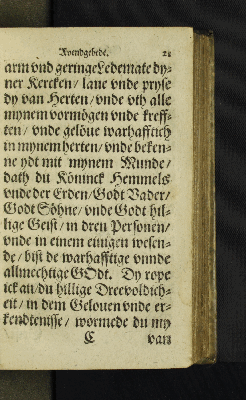 Avendgebede. 21
arm vnd geringe Ledemate dy-
ner Kercken/ laue vnde pryse
dy van Herten/ vnde vth alle
mynem vormögen vnde kreff-
ten/ vnde gelöue warhafftich
in mynem herten/ vnde beken-
ne ydt mit mynem Munde/
dath du Köninck Hemmels
vnde der Erden/ Godt Vader/
Godt Söhne/ vnde Godt hil-
lige Geist/ in dren Personen/
vnde in einem einigen wesen-
de/ bist de warhafftige vnnde
allmechtige GOdt. Dy rope
ick an/ du hillige Dreevoldich-
eit/ in dem Gelouen vnde er-
kendtenisse/ wormede du my
C van